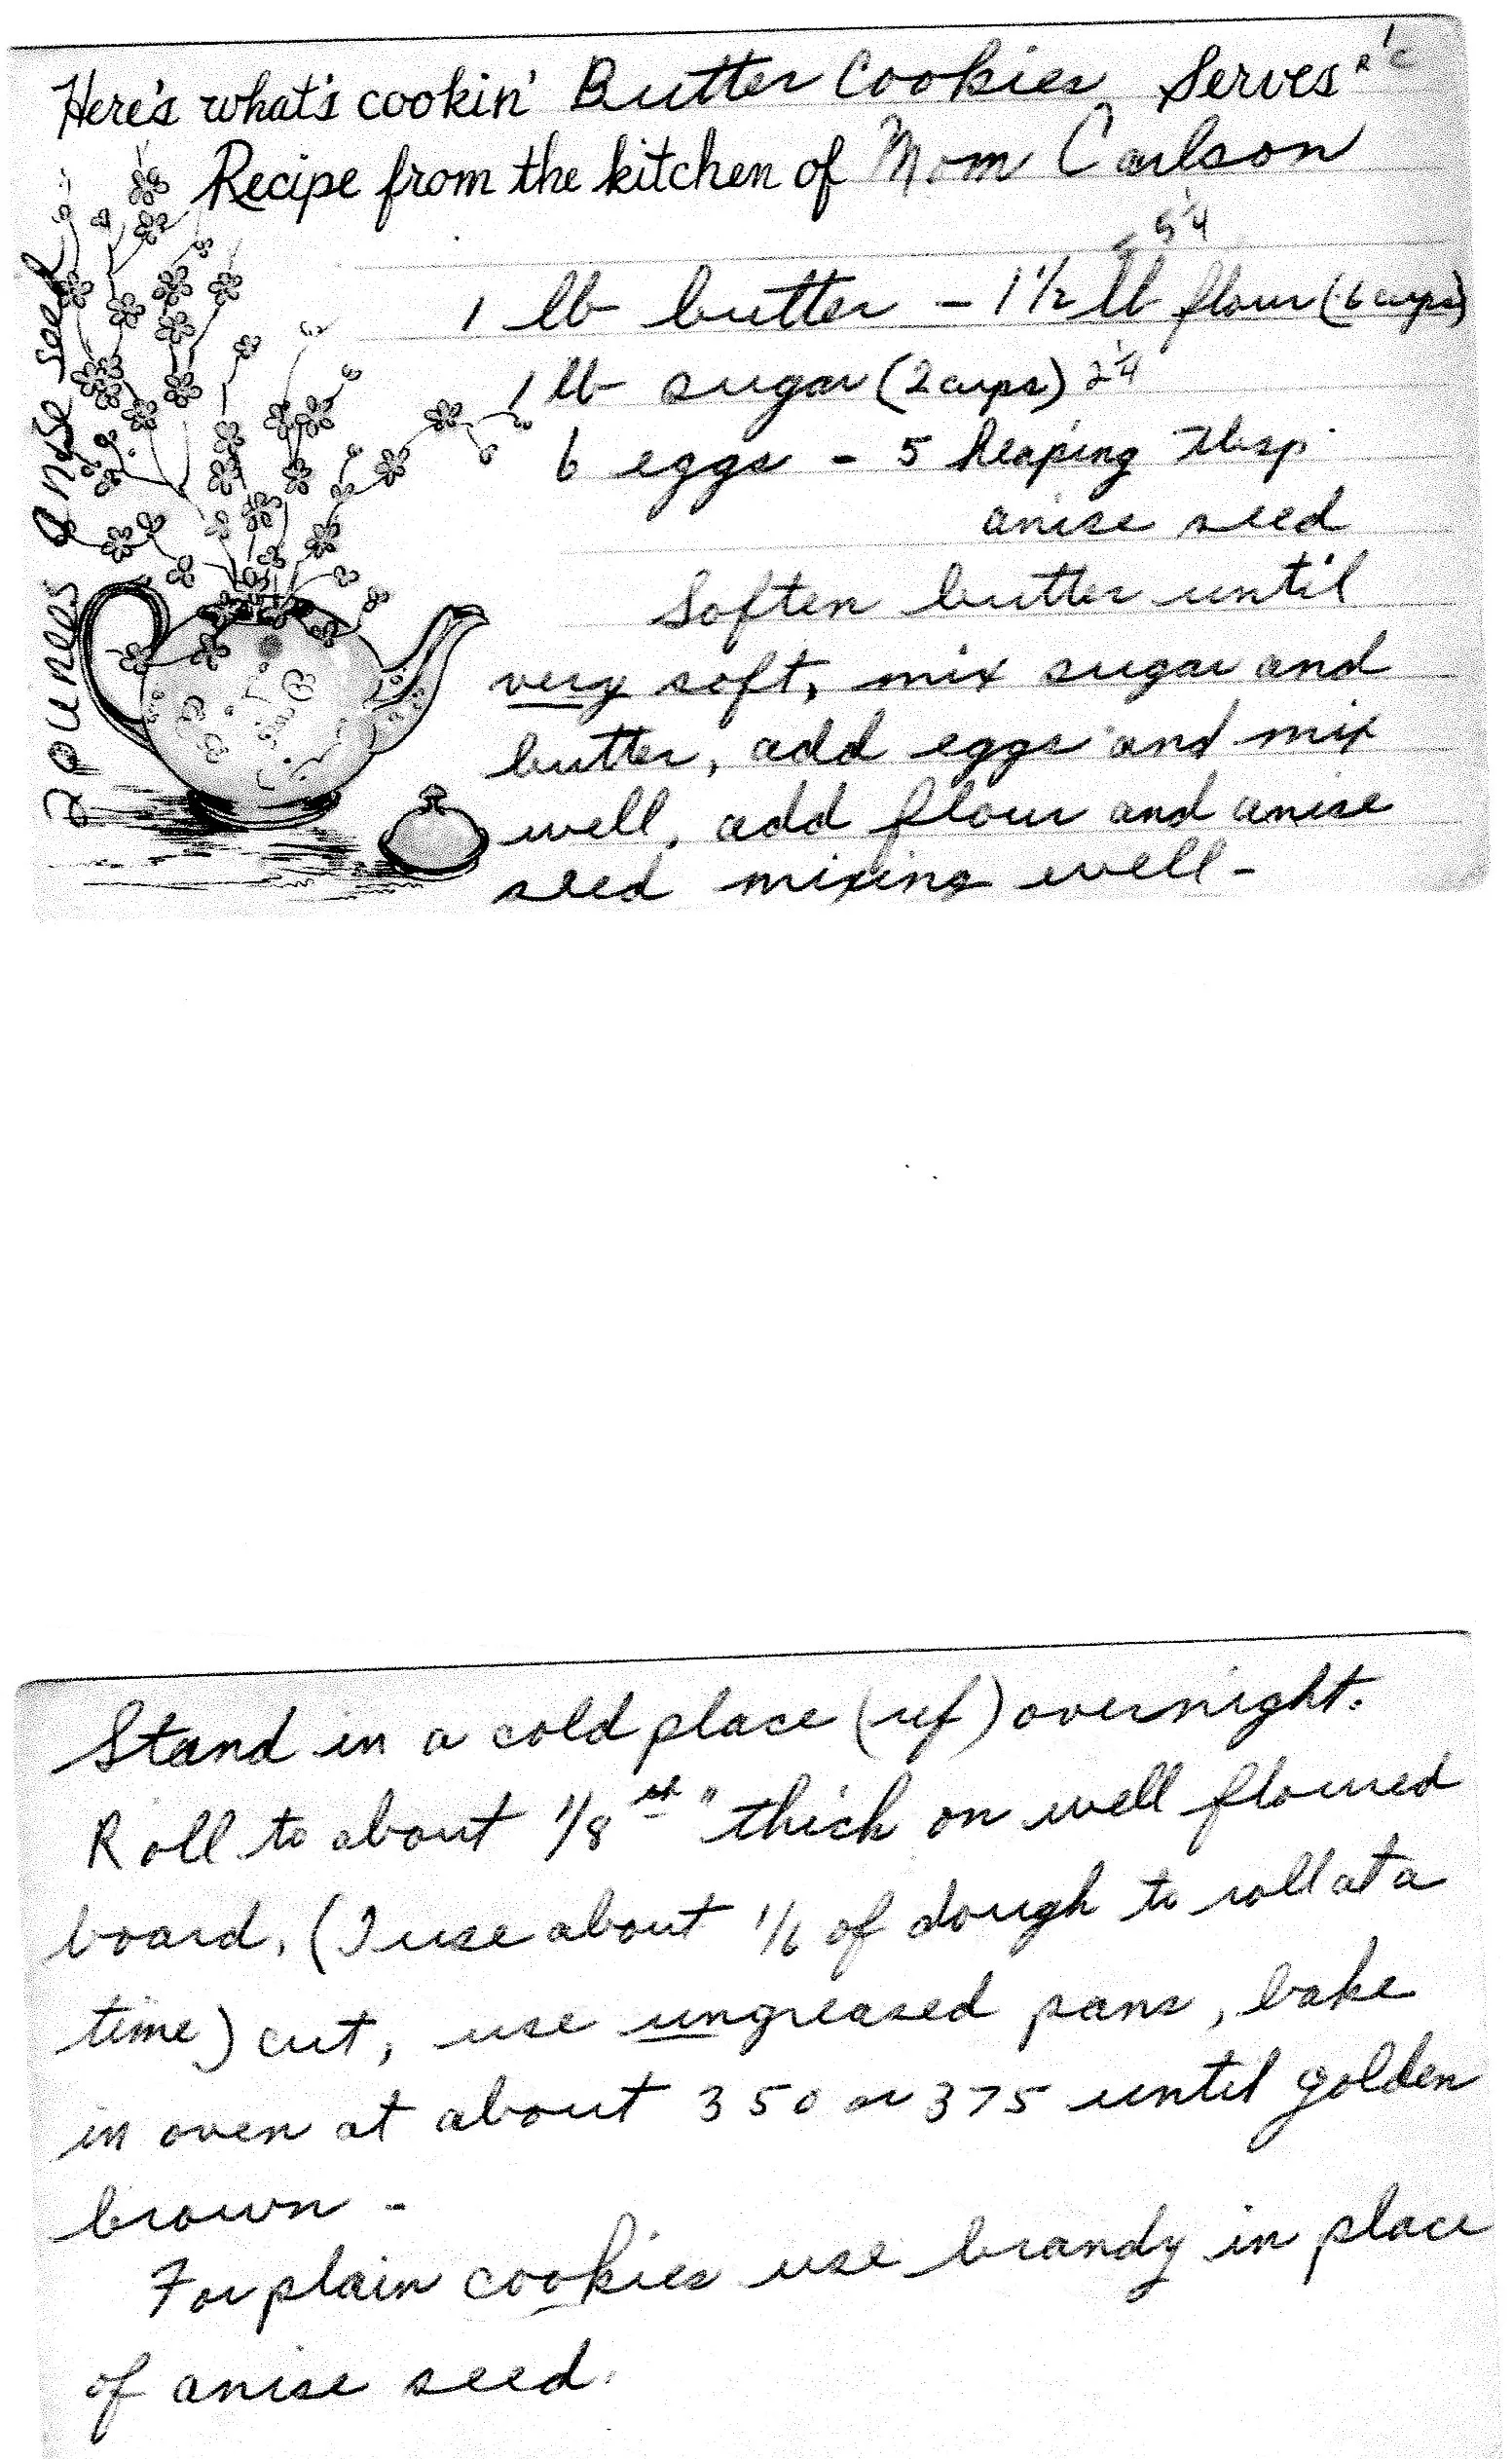 Here's what's cookin' Butter Cookies Serves
Recipe from the kitchen of Mom Carlson
5 1/4
1 lb butter - 1 1/2 lb flour (6 cups)
1 lb sugar (2 cups) 2 1/4
6 eggs - 5 heaping Tbsp.
anise seed
Soften butter until
very soft, mix sugar and
butter, add eggs and mix
well, add flour and anise
seed mixing well -
2 ounces anise seed
Stand in a cold place (ref) overnight.
Roll to about 1/8 " thick on well floured
board. (I use about 1/6 of dough to roll at a
time) cut, use ungreased pans, bake
in oven at about 350 or 375 until golden
brown -
For plain cookies use brandy in place
of anise seed.